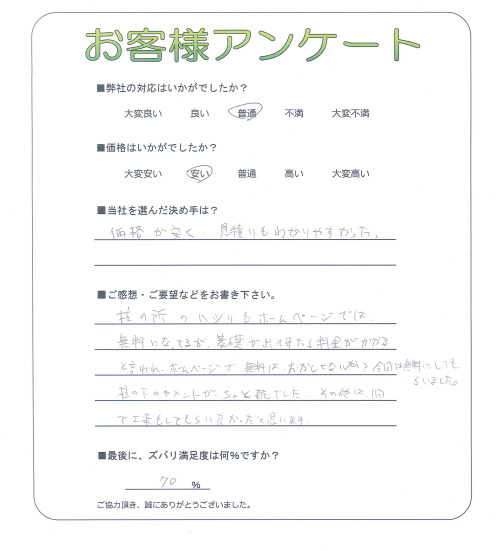 お客様アンケート
■弊社の対応はいかがでしたか？
大変良い 良い 普通 不満 大変不満
■価格はいかがでしたか？
大変安い 安い 普通 高い 大変高い
■当社を選んだ決め手は？
価格が安く、見積りもわかりやすかった。
■ご感想・ご要望などをお書き下さい。
柱の所のハツリもホームページでは、
無料になってるが、基礎が出て来たら料金がかかる
と言われ、ホームページで無料は、おかしくない 今回は無料にしても
らいました。
柱の下のセメントが、ちょっと雑でした。その他は、
で工事もしてもらい良かったと思います。
■最後に、ズバリ満足度は何％ですか？
70 ％
ご協力頂き、誠にありがとうございました。